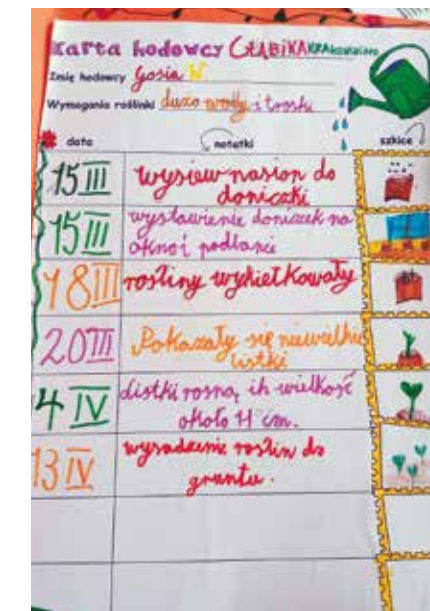 Karta hodowcy GŁĄBIKA KRAkowskiego
Imię hodowcy Gosia N
Wymagania roślinki dużo wody i troski
data notatki szkice
15 III wysiew nasion do
doniczki
15 III wystawienie doniczek na
okno i podlanie
18 III rośliny wykiełkowały
20 III Pokazały się niewielkie
listki
4 IV listki rosną, ich wielkość
około 11 cm.
13 IV wysadzenie roślin do
gruntu.